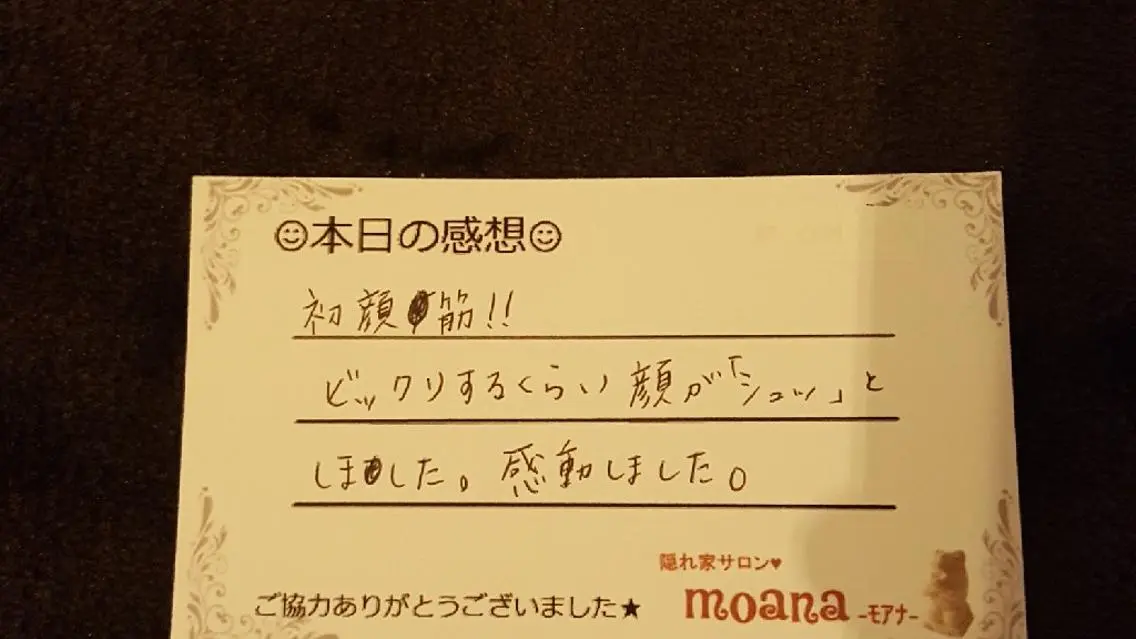 ☺本日の感想☺
初顔筋!!
ビックリするくらい顔が「シュッ」と
しました。感動しました。
隠れ家サロン♥
ご協力ありがとうございました★
moana -モアナ-